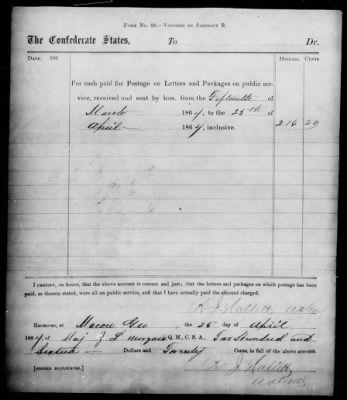 FORM No. 28.—VOUCHER TO ABSTRACT B.
The Confederate States, To Dr.
DATE. 186 DOLLARS. CENTS
For cash paid for Postage on Letters and Packages on public service, received and sent by him, from the Fifteenth of
March 1864 to the 25th of
April 1864, inclusive. 216 20
I CERTIFY, on honor, that the above account is correct and just; that the letters and packages on which postage has
been paid, as therein stated, were all on public service, and that I have actually paid the amount charged.
RECEIVED, at Macon Geo the 25 day of April
1864, of Maj Q. M., C. S. A., Two Hundred and
Sixteen Dollars and Twenty Cents, in full of the above account.
[SIGNED DUPLICATES.]